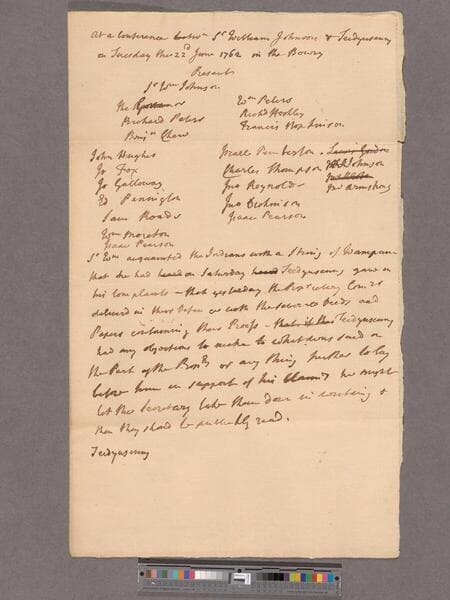 At a Conference betwn Sr William Johnson & Teedyuscung
on Tuesday the 22d June 1762 in the Bowry
Present
Sr Wm Johnson
The Governor
Wm Peters
Richard Peters
Richd Hockley
Benjn Chew
Francis Hopkinson
John Hughes
Israel Pemberton
Jo Fox
Charles Thompson
Johnson
Jo Galloway
Jno Reynolds
Jno Armstrong
Ed Penington
Jno Dickinson
Sam Roads
Isaac Pearson
Wm Moreton
Isaac Pearson
Sr Wm acquainted the Indians with a String of Wampum
that he had heard on Saturday Teedyuscung gave in
his Complaints - that yesterday the Proprietary Comrs
delivered in their Paper with the several Deeds and
Papers containing their Proofs - that if Teedyuscung
had any objections to make to what was said on
the Part of the Proprs or any thing further to lay
before him in support of his Claim he might
let the Secretary take them down in writing &
then they should be publickly read.
Teedyuscung